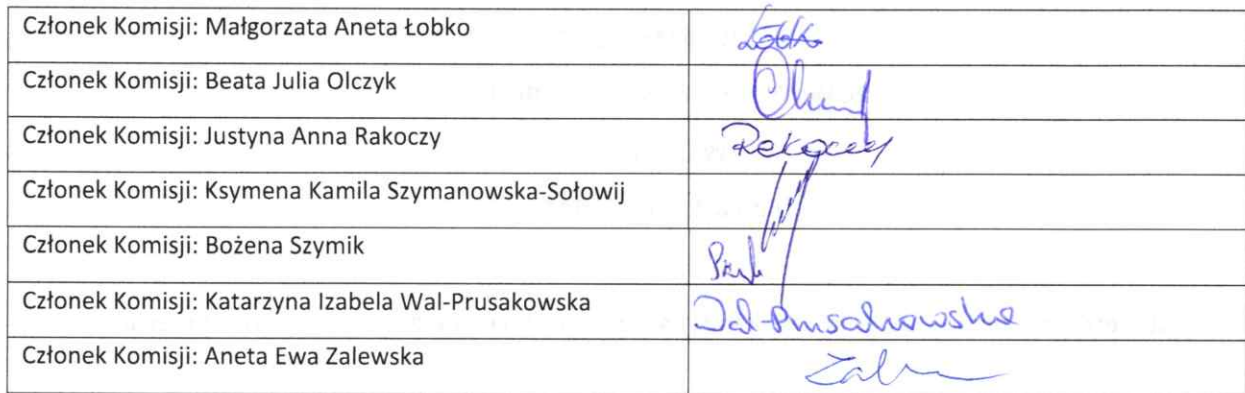 Członek Komisji: Małgorzata Aneta Łobko Łobko
Członek Komisji: Beata Julia Olczyk
Członek Komisji: Justyna Anna Rakoczy Rakoczy
Członek Komisji: Ksymena Kamila Szymanowska-Sołowij
Członek Komisji: Bożena Szymik
Członek Komisji: Katarzyna Izabela Wal-Prusakowska Wal-Prusakowska
Członek Komisji: Aneta Ewa Zalewska